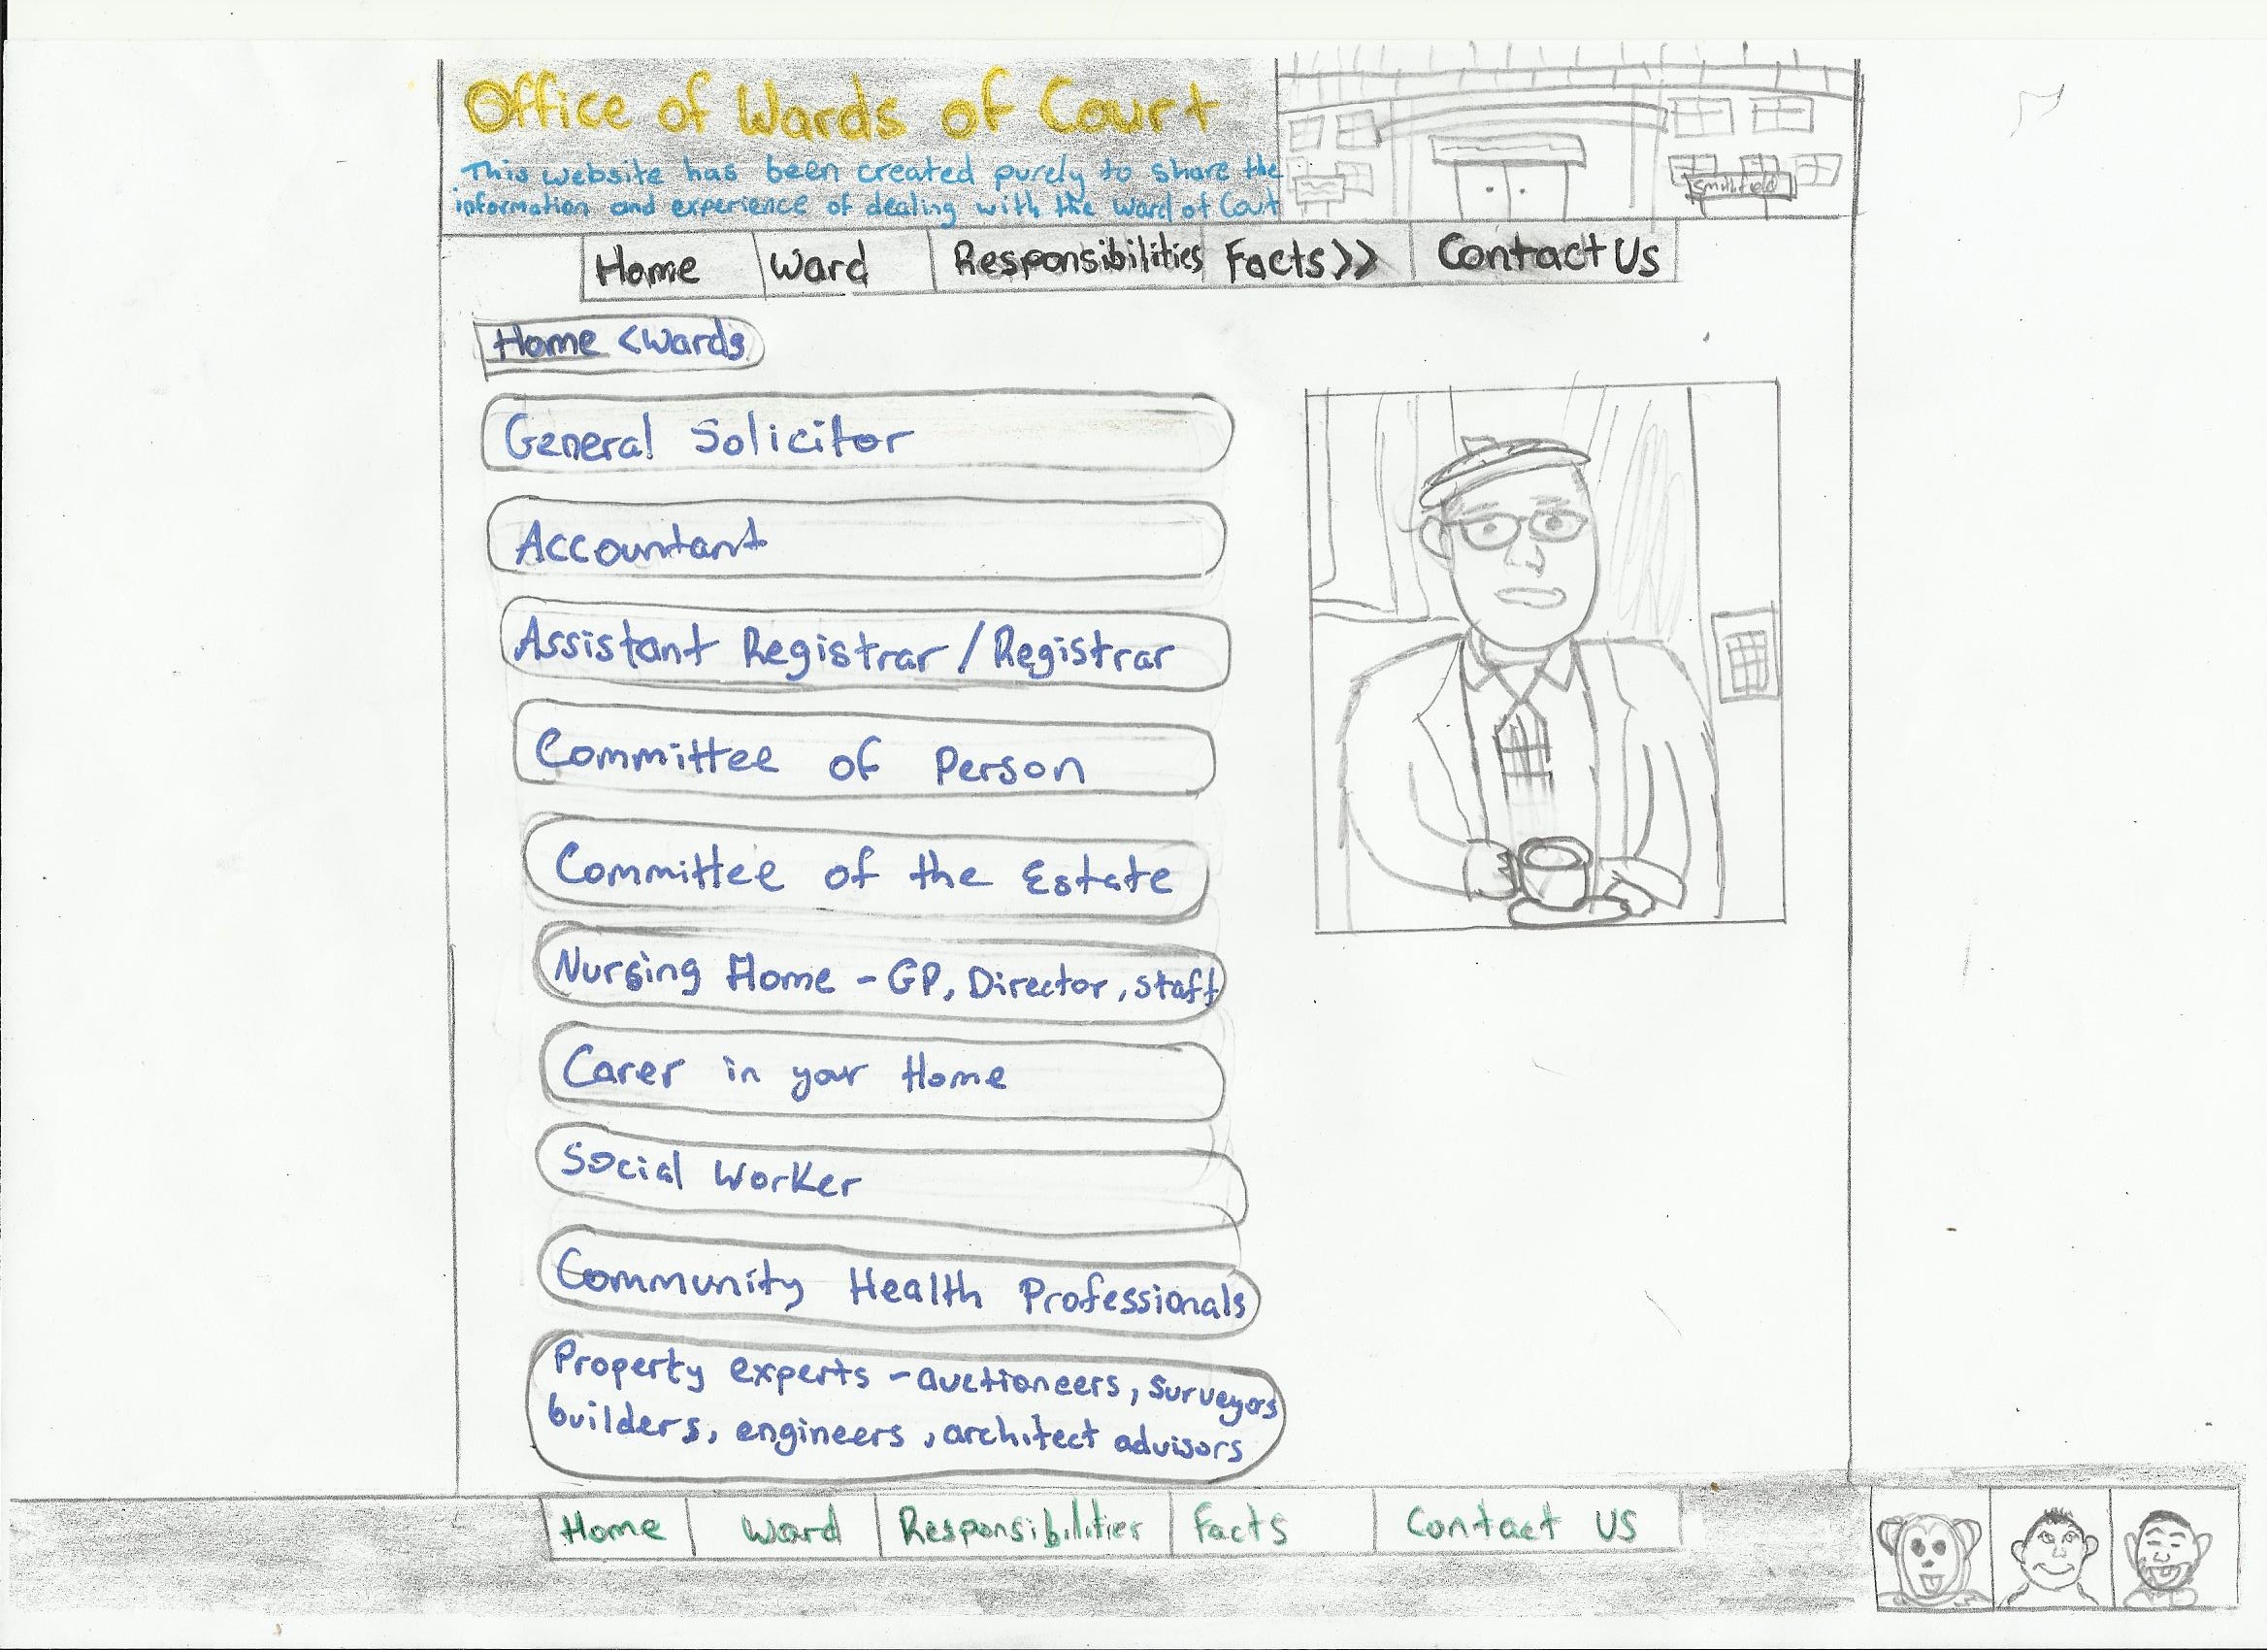 Office of Wards of Court
This website has been created purely to share the
information and experience of dealing with the Ward of Court
Smithfield
Home Ward Responsibilities Facts>> Contact Us
Home <Wards
General Solicitor
Accountant
Assistant Registrar / Registrar
Committee of Person
Committee of the Estate
Nursing Home - GP, Director, staff
Carer in your Home
Social Worker
Community Health Professionals
Property experts - auctioneers, surveyors
builders, engineers, architect advisors
Home Ward Responsibilities Facts Contact US